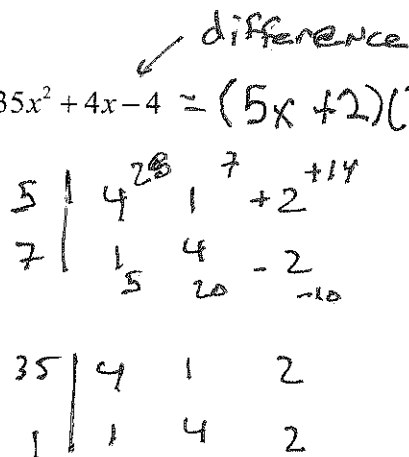 difference
35x² + 4x − 4 = (5x +2)(
5 | 4 28 1 7 +2 +14
7 | 1 5 4 20 -2 -10
35 | 4 1 2
1 | 1 4 2